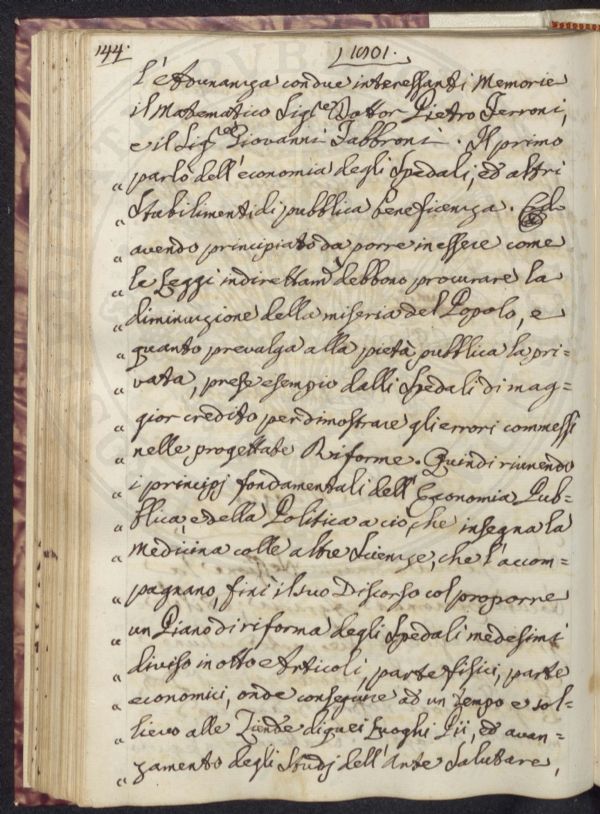 144.
1801.
l'Adunanza con due interessanti Memorie
il Matematico Sig.re Dottor Pietro Ferroni,
e il Sig.re Giovanni Fabbroni. Il primo
„ parlò dell'economia degli Spedali, ed altri
„ Stabilimenti di pubblica beneficenza. Ed
„ avendo principiato da porre in essere come
„ le Leggi indirettam.e debbono procurare la
„ diminuzione della miseria del Popolo, e
„ quanto prevalga alla pietà pubblica la pri=
„ vata, prese esempio dalli Spedali di mag=
„ gior credito per dimostrare gli errori commessi
„ nelle progettate Riforme. Quindi riunendo
„ i principj fondamentali dell'Economia Pub=
„ blica, e della Politica a ciò, che insegna la
„ Medicina colle altre Scienze, che l'accom=
„ pagnano, finì il suo Discorso col proporre
„ un Piano di riforma degli Spedali medesimi
„ diviso in otto Articoli, parte fisici, parte
„ economici, onde conseguire ad un tempo e sol=
„ lievo alle Ziende di quei Luoghi Pii, ed avan=
„ zamento degli Studj dell'Arte Salutare,